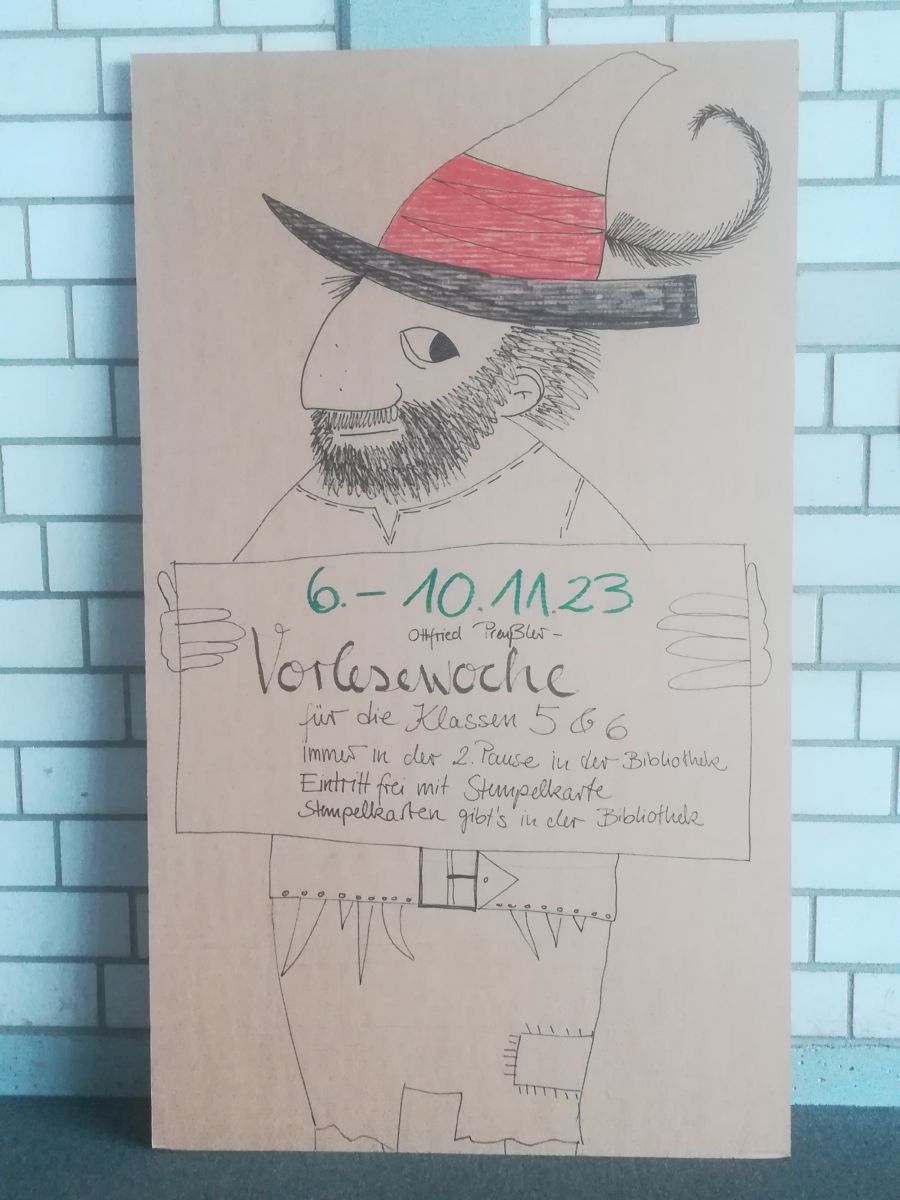 6. – 10.11.23
Otfried Preußler –
Vorlesewoche
für die Klassen 5 & 6
immer in der 2. Pause in der Bibliothek
Eintritt frei mit Stempelkarte
Stempelkarten gibt's in der Bibliothek